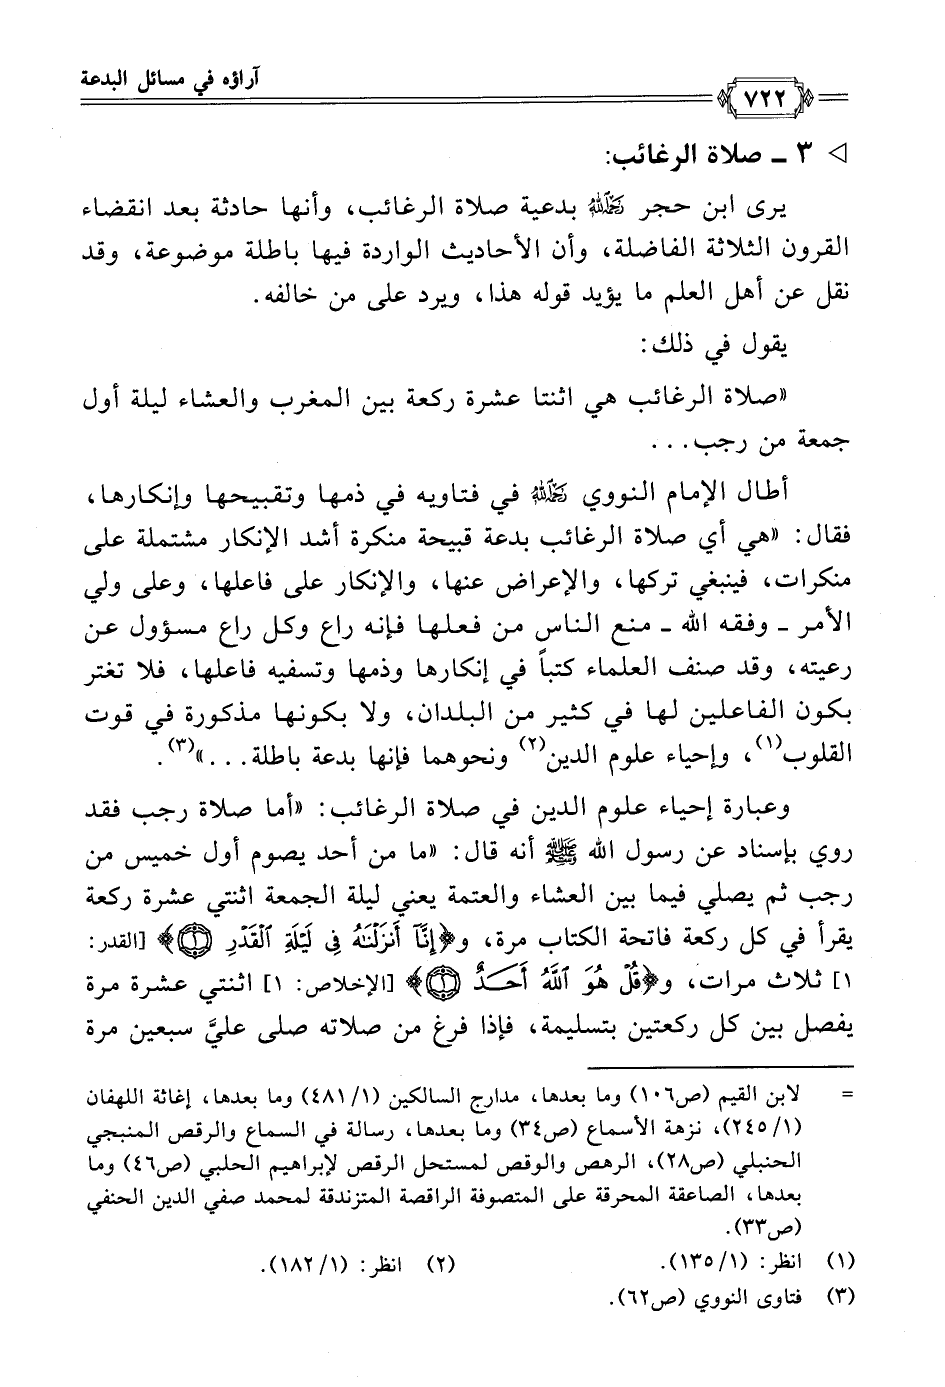 آراؤه في مسائل البدعة
٧٢٢
٣ ـ صلاة الرغائب:
يرى ابن حجر رحمه الله بدعية صلاة الرغائب، وأنها حادثة بعد انقضاء
القرون الثلاثة الفاضلة، وأن الأحاديث الواردة فيها باطلة موضوعة، وقد
نقل عن أهل العلم ما يؤيد قوله هذا، ويرد على من خالفه.
يقول في ذلك:
«صلاة الرغائب هي اثنتا عشرة ركعة بين المغرب والعشاء ليلة أول
جمعة من رجب...
أطال الإمام النووي رحمه الله في فتاويه في ذمها وتقبيحها وإنكارها،
فقال: «هي أي صلاة الرغائب بدعة قبيحة منكرة أشد الإنكار مشتملة على
منكرات، فينبغي تركها، والإعراض عنها، والإنكار على فاعلها، وعلى ولي
الأمر ـ وفقه الله ـ منع الناس من فعلها فإنه راع وكل راع مسؤول عن
رعيته، وقد صنف العلماء كتباً في إنكارها وذمها وتسفيه فاعلها، فلا تغتر
بكون الفاعلين لها في كثير من البلدان، ولا بكونها مذكورة في قوت
القلوب(١)، وإحياء علوم الدين(٢) ونحوهما فإنها بدعة باطلة...»(٣).
وعبارة إحياء علوم الدين في صلاة الرغائب: «أما صلاة رجب فقد
روي بإسناد عن رسول الله ﷺ أنه قال: «ما من أحد يصوم أول خميس من
رجب ثم يصلي فيما بين العشاء والعتمة يعني ليلة الجمعة اثنتي عشرة ركعة
يقرأ في كل ركعة فاتحة الكتاب مرة، و﴿إِنَّآ أَنزَلْنَٰهُ فِى لَيْلَةِ ٱلْقَدْرِ ۝١﴾ [القدر:
١] ثلاث مرات، و﴿قُلْ هُوَ ٱللَّهُ أَحَدٌ ۝١﴾ [الإخلاص: ١] اثنتي عشرة مرة
يفصل بين كل ركعتين بتسليمة، فإذا فرغ من صلاته صلى عليَّ سبعين مرة
= لابن القيم (ص١٠٦) وما بعدها، مدارج السالكين (٤٨١/١) وما بعدها، إغاثة اللهفان
(٢٤٥/١)، نزهة الأسماع (ص٣٤) وما بعدها، رسالة في السماع والرقص المنبجي
الحنبلي (ص٢٨)، الرهص والوقص لمستحل الرقص لإبراهيم الحلبي (ص٤٦) وما
بعدها، الصاعقة المحرقة على المتصوفة الراقصة المتزندقة لمحمد صفي الدين الحنفي
(ص٣٣).
(١) انظر: (١٣٥/١). (٢) انظر: (١٨٢/١).
(٣) فتاوى النووي (ص٦٢).